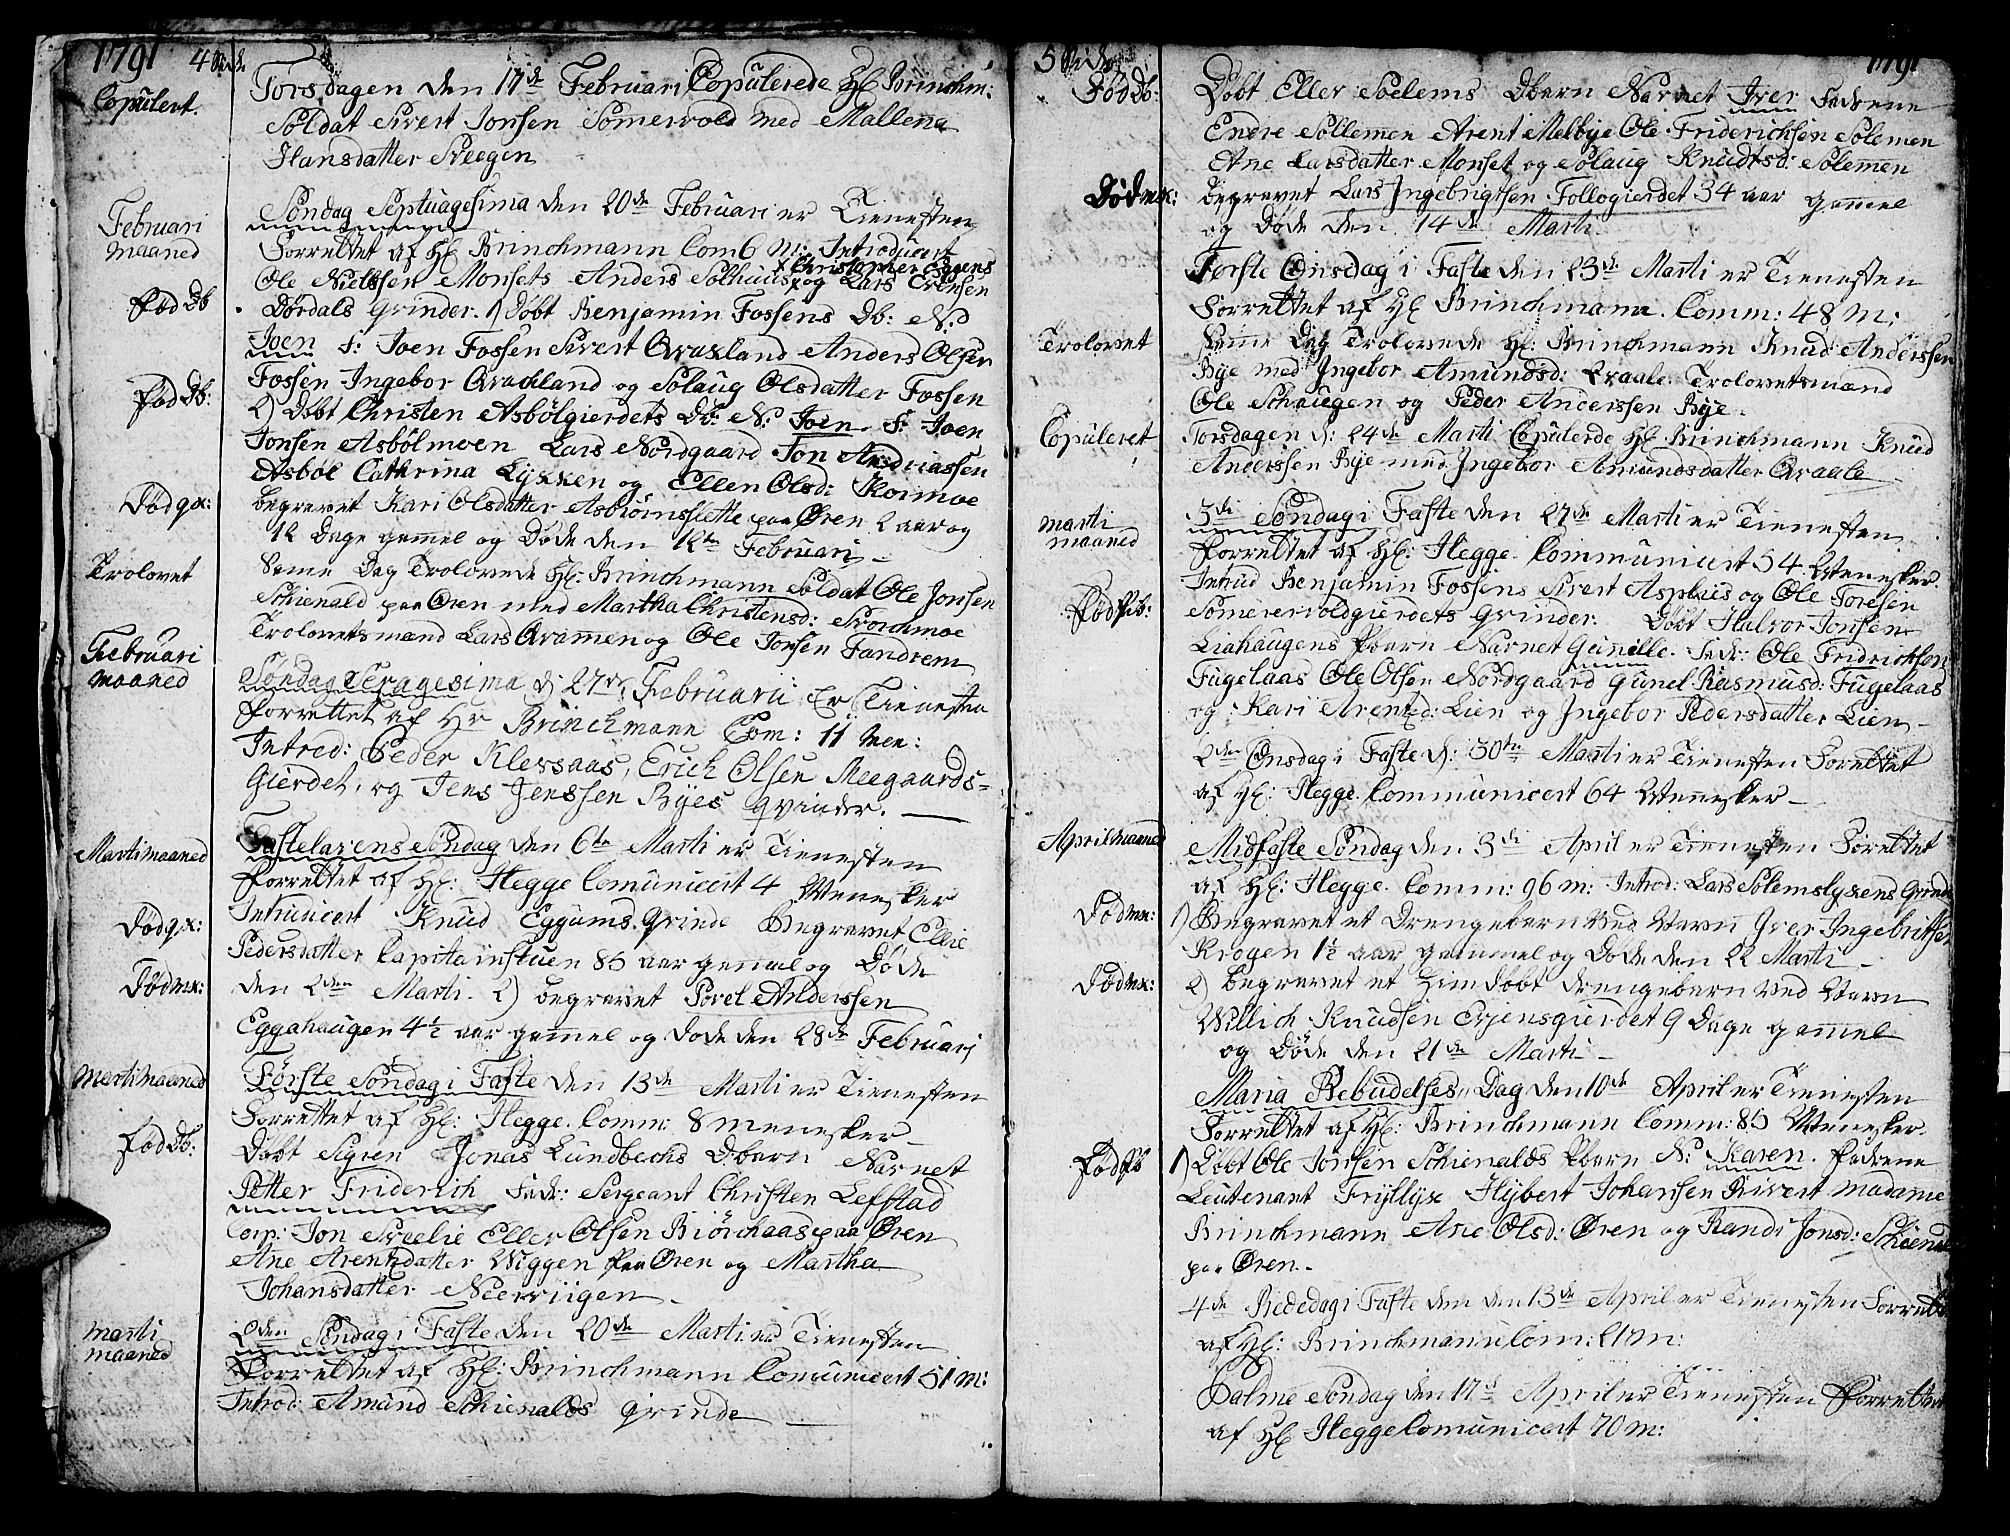 1791 4 Side
Copulert.
Torsdagen den 17de Februari Copulerede Hl Brinchm:
Soldat Sivert Jonsen Somervold med Mallena
Hansdatter Sveegen
Februari
maaned
Søndag Septuagesima den 20de Februari er Tienesten
Forrettet af Hl Brinchmann Com 6 M: Introducert
Ole Nielssen Monsets Anders Solhuus x og Lars Evensen
x Christopher Eggens
Fød Db
Dørdals qvinder. 1) Døbt Benjamin Fossens Db: N:
Joen F: Joen Fossen Sivert Qvakland Anders Olsen
Fossen Ingebor Qvakland og Solaug Olsdatter Fossen
Fød Db:
2) Døbt Christen Asbølgierdets Db: N: Joen. F: Joen
Jonsen Asbølmoen Lars Nordgaard Jon Andriassen
Asbøl Cathrina Lykken og Ellen Olsd: Kormoe
Død qx:
begravet Kari Olsdatter Asbiørnslette paa Øren 2 aar og
12 Dage gammel og Døde den 12te Februari
Trolovet
Same Dag Trolovede Hl: Brinchmann Soldat Ole Jonsen
Schienald paa Øren med Martha Christensd: Storchmoe
Trolovetsmænd Lars Qvammen og Ole Jonsen Fandrem
Februari
maaned
Søndag Sexagesima d: 27de Februarii Er Tienesten
Forrettet af Hr Brinchmann Com: 11 Men:
Introd: Peder Klevsaas, Erich Olsen Meegaards-
Gierdet, og Jens Jenssen Byes qvinder.
Marti maaned
Fastelavens Søndag den 6te Marti er Tienesten
Forrettet af Hl: Hegge Comunicert 4 Menesker
Introducert Knud Eggums Qvinde Begravet Ellie
Død qx:
Pedersdatter Capitainstuen 85 aar gammel og Døde
Død mx:
den 2den Marti. 2) begravet Povel Anderssen
Eggahaugen 4½ aar gammel og døde den 28de Februari
Marti maaned
Første Søndag i Faste den 13de Marti er Tienesten
Forrettet af Hl: Hegge. Comm: 8 menesker
Fød Db:
Døbt Signr Jonas Lundbechs Dbarn Navnet
Petter Friderich Fadr: Sergeant Christen Lefstad
Corp: Jon Sveelie Eller Olsen Biørchaas paa Øren
Ane Arentzdatter Wiggen paa Øren og Martha
Johansdatter Neerviigen
Marti
maaned
2den Søndag i Faste den 20de Marti er Tienesten
Forrettet af Hl: Brinchmann Comunicert 51 M:
Introd: Amund Schienalds Qvinde
5 Side 1791
Fød Db:
Døbt Eller Solems Dbarn Navnet Iver Fadrene
Endre Sollemen Arent Melbye Ole Friderichsen Solemen
Ane Larsdatter Monset og Solaug Knudtsd: Solemen
Død mx:
begravet Lars Ingebrigtsen Follogierdet 34 aar gammel
og Døde den 14de Marti
Første Onsdag i Faste den 23de Marti er Tienesten
Forrettet af Hl Brinchmann. Comm: 48 M:
Trolovet
Same Dag Trolovede Hl: Brinchmann Knud Anderssen
Bye med Ingebor Amundsd: Qvaale. Trolovetsmænd
Ole Schaugen og Peder Anderssen Bye.
Copuleret
Torsdagen d: 24de Marti Copulerde Hl Brinchmann Knud
Anderssen Bye med Ingebor Amundsdatter Qvaale
Marti
maaned
3di Søndag i Faste den 27de Marti er Tienesten
Forrettet af Hl: Hegge. Communicert 54 Menesker.
Introd Benjamin Fossens Sivert Asphus og Ole Toresen
Fød Pb:
Somervoldgierdets qvinder. Døbt Halvor Jonsen
Liahaugens Pbarn Navnet Gunille. Fadr: Ole Fridrichsen
Fugelaas Ole Olsen Nordgaard Gunel Rasmusd: Fugelaas
og Kari Arentzd: Lien og Ingebor Pedersdatter Lien
2den Onsdag i Faste d: 30te Marti er Tienesten Forrettet
af Hl: Hegge. Communicert 64 Menesker
April maaned
Midfaste Søndag den 3di April er Tienesten Forrettet
af Hl: Hegge. Comm: 96 m: Introd: Lars Solemslykens Qvinde
Død mx:
1) Begravet et Drengebarn ved Navn Iver Ingebritsen
Krogen 1½ aar gammel og Døde den 22 Marti
Død mx:
2) begravet et Hiemdøbt drengebarn ved Navn
Willich Knudsen Evjensgierdet 9 Dage gammel
og Døde den 21de Marti
Maria Bebudelses Dag den 10de April er Tienesten
Forrettet af Hl: Brinchmann Comm: 85 Menesker.
Fød Pb
1) Døbt Ole Jonsen Schienalds Pbarn N: Karen. Fadrene
Leutenant Frylyx Hybert Johansen Sivert Madame
Brinchmann Ane Olsd: Øren og Randi Jonsd: Schienal
paa Øren.
4de Bededag i Faste den den 13de April er Tienesten Forrettet
af Hl: Brinchmann Com: 21 m:
Palme Søndag den 17de April er Tienesten Forrettet
af Hl Hegge Comunicert 70 m: